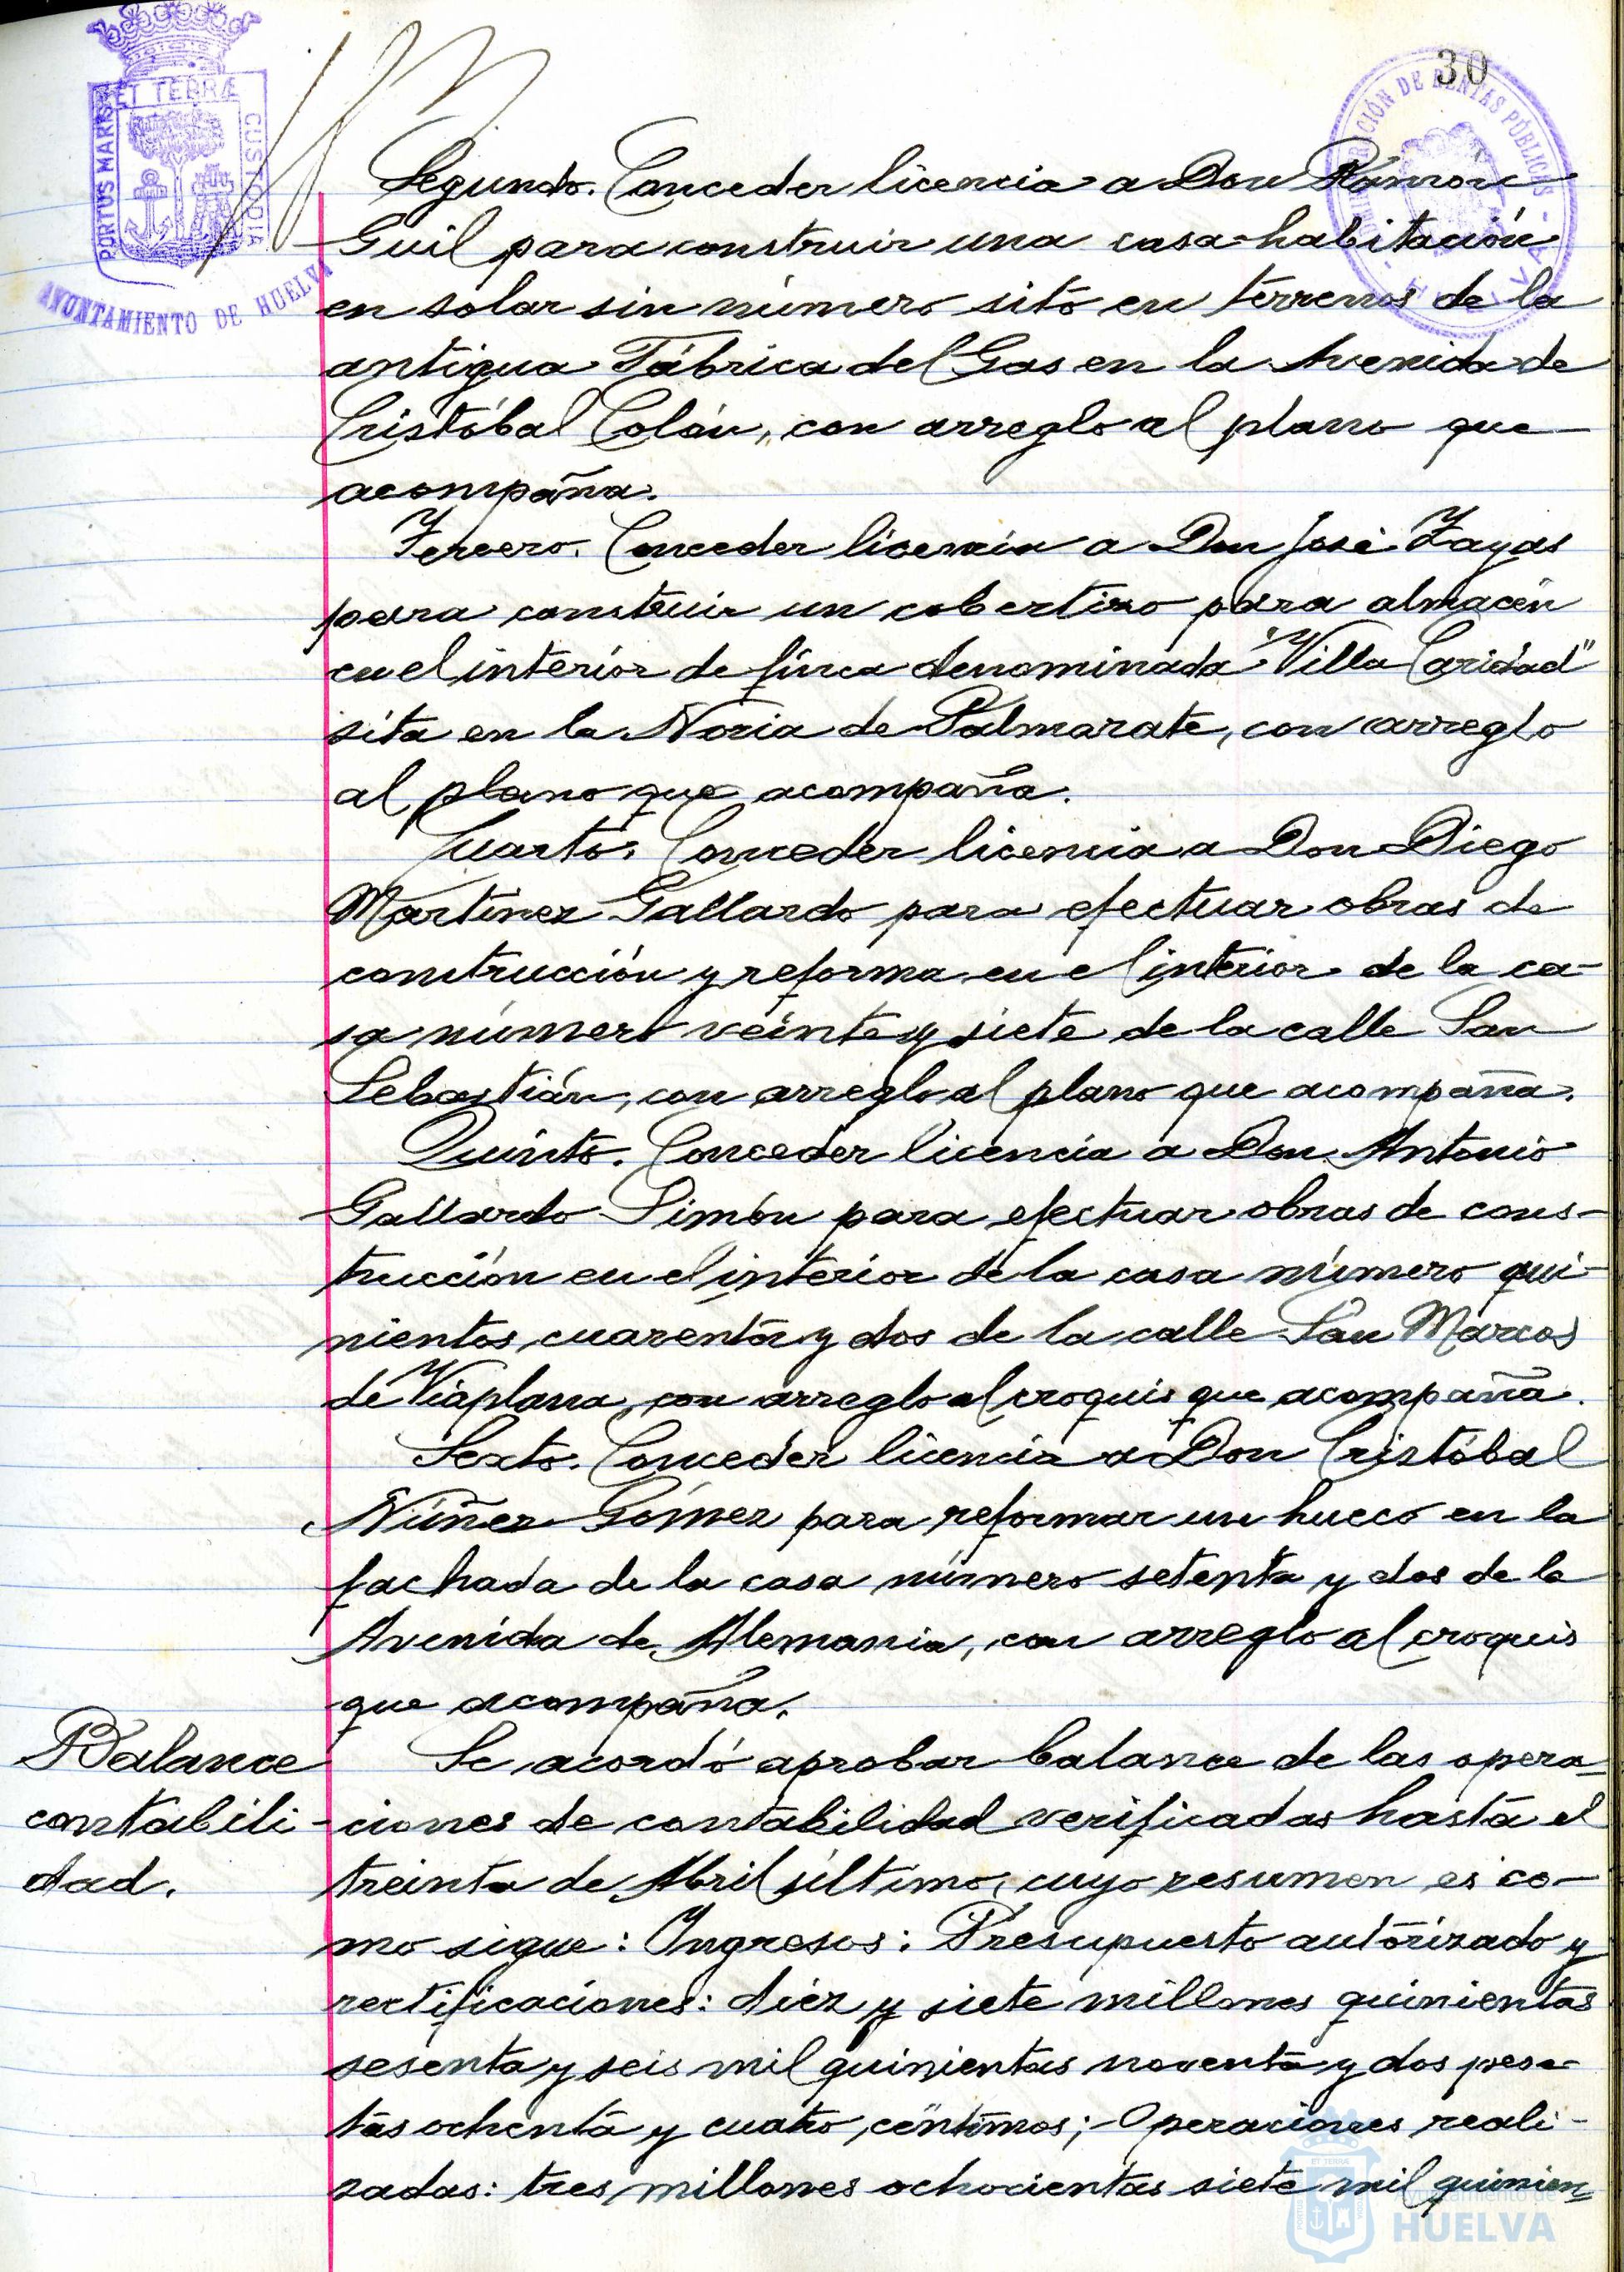 30
PORTUS MARIS ET TERRÆ CUSTODIA
AYUNTAMIENTO DE HUELVA
CIÓN DE RENTAS PÚBLICAS
Segundo. Conceder licencia a Don Ramon
Guil para construir una casa-habitación
en solar sin número sito en terrenos de la
antigua Fábrica del Gas en la Avenida de
Cristóbal Colón, con arreglo al plano que
acompaña.
Tercero. Conceder licencia a Don José Zayas
para construir un cobertizo para almacén
en el interior de finca denominada "Villa Caridad"
sita en la Noria de Palmarate, con arreglo
al plano que acompaña.
Cuarto. Conceder licencia a Don Diego
Martínez Gallardo para efectuar obras de
construcción y reforma en el interior de la ca-
sa número veinte y siete de la calle San
Sebastián, con arreglo al plano que acompaña.
Quinto. Conceder licencia a Don Antonio
Gallardo Simón para efectuar obras de cons-
trucción en el interior de la casa número qui-
nientos cuarenta y dos de la calle San Marcos
de Viaplana, con arreglo al croquis que acompaña.
Sexto. Conceder licencia a Don Cristóbal
Núñez Gómez para reformar un hueco en la
fachada de la casa número setenta y dos de la
Avenida de Alemania, con arreglo al croquis
que acompaña.
Balance
contabili-
dad.
Se acordó aprobar balance de las opera-
ciones de contabilidad verificadas hasta el
treinta de Abril último, cuyo resumen es co-
mo sigue: Ingresos: Presupuesto autorizado y
rectificaciones: diez y siete millones quinientas
sesenta y seis mil quinientas noventa y dos pese-
tas ochenta y cuatro céntimos; Operaciones reali-
zadas: tres millones ochocientas siete mil quinien-
Ayuntamiento de
HUELVA